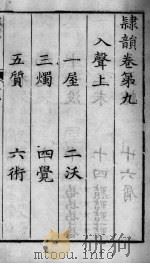 隸韻卷第九
入聲上
一屋　二沃
三燭　四覺
五質　六術